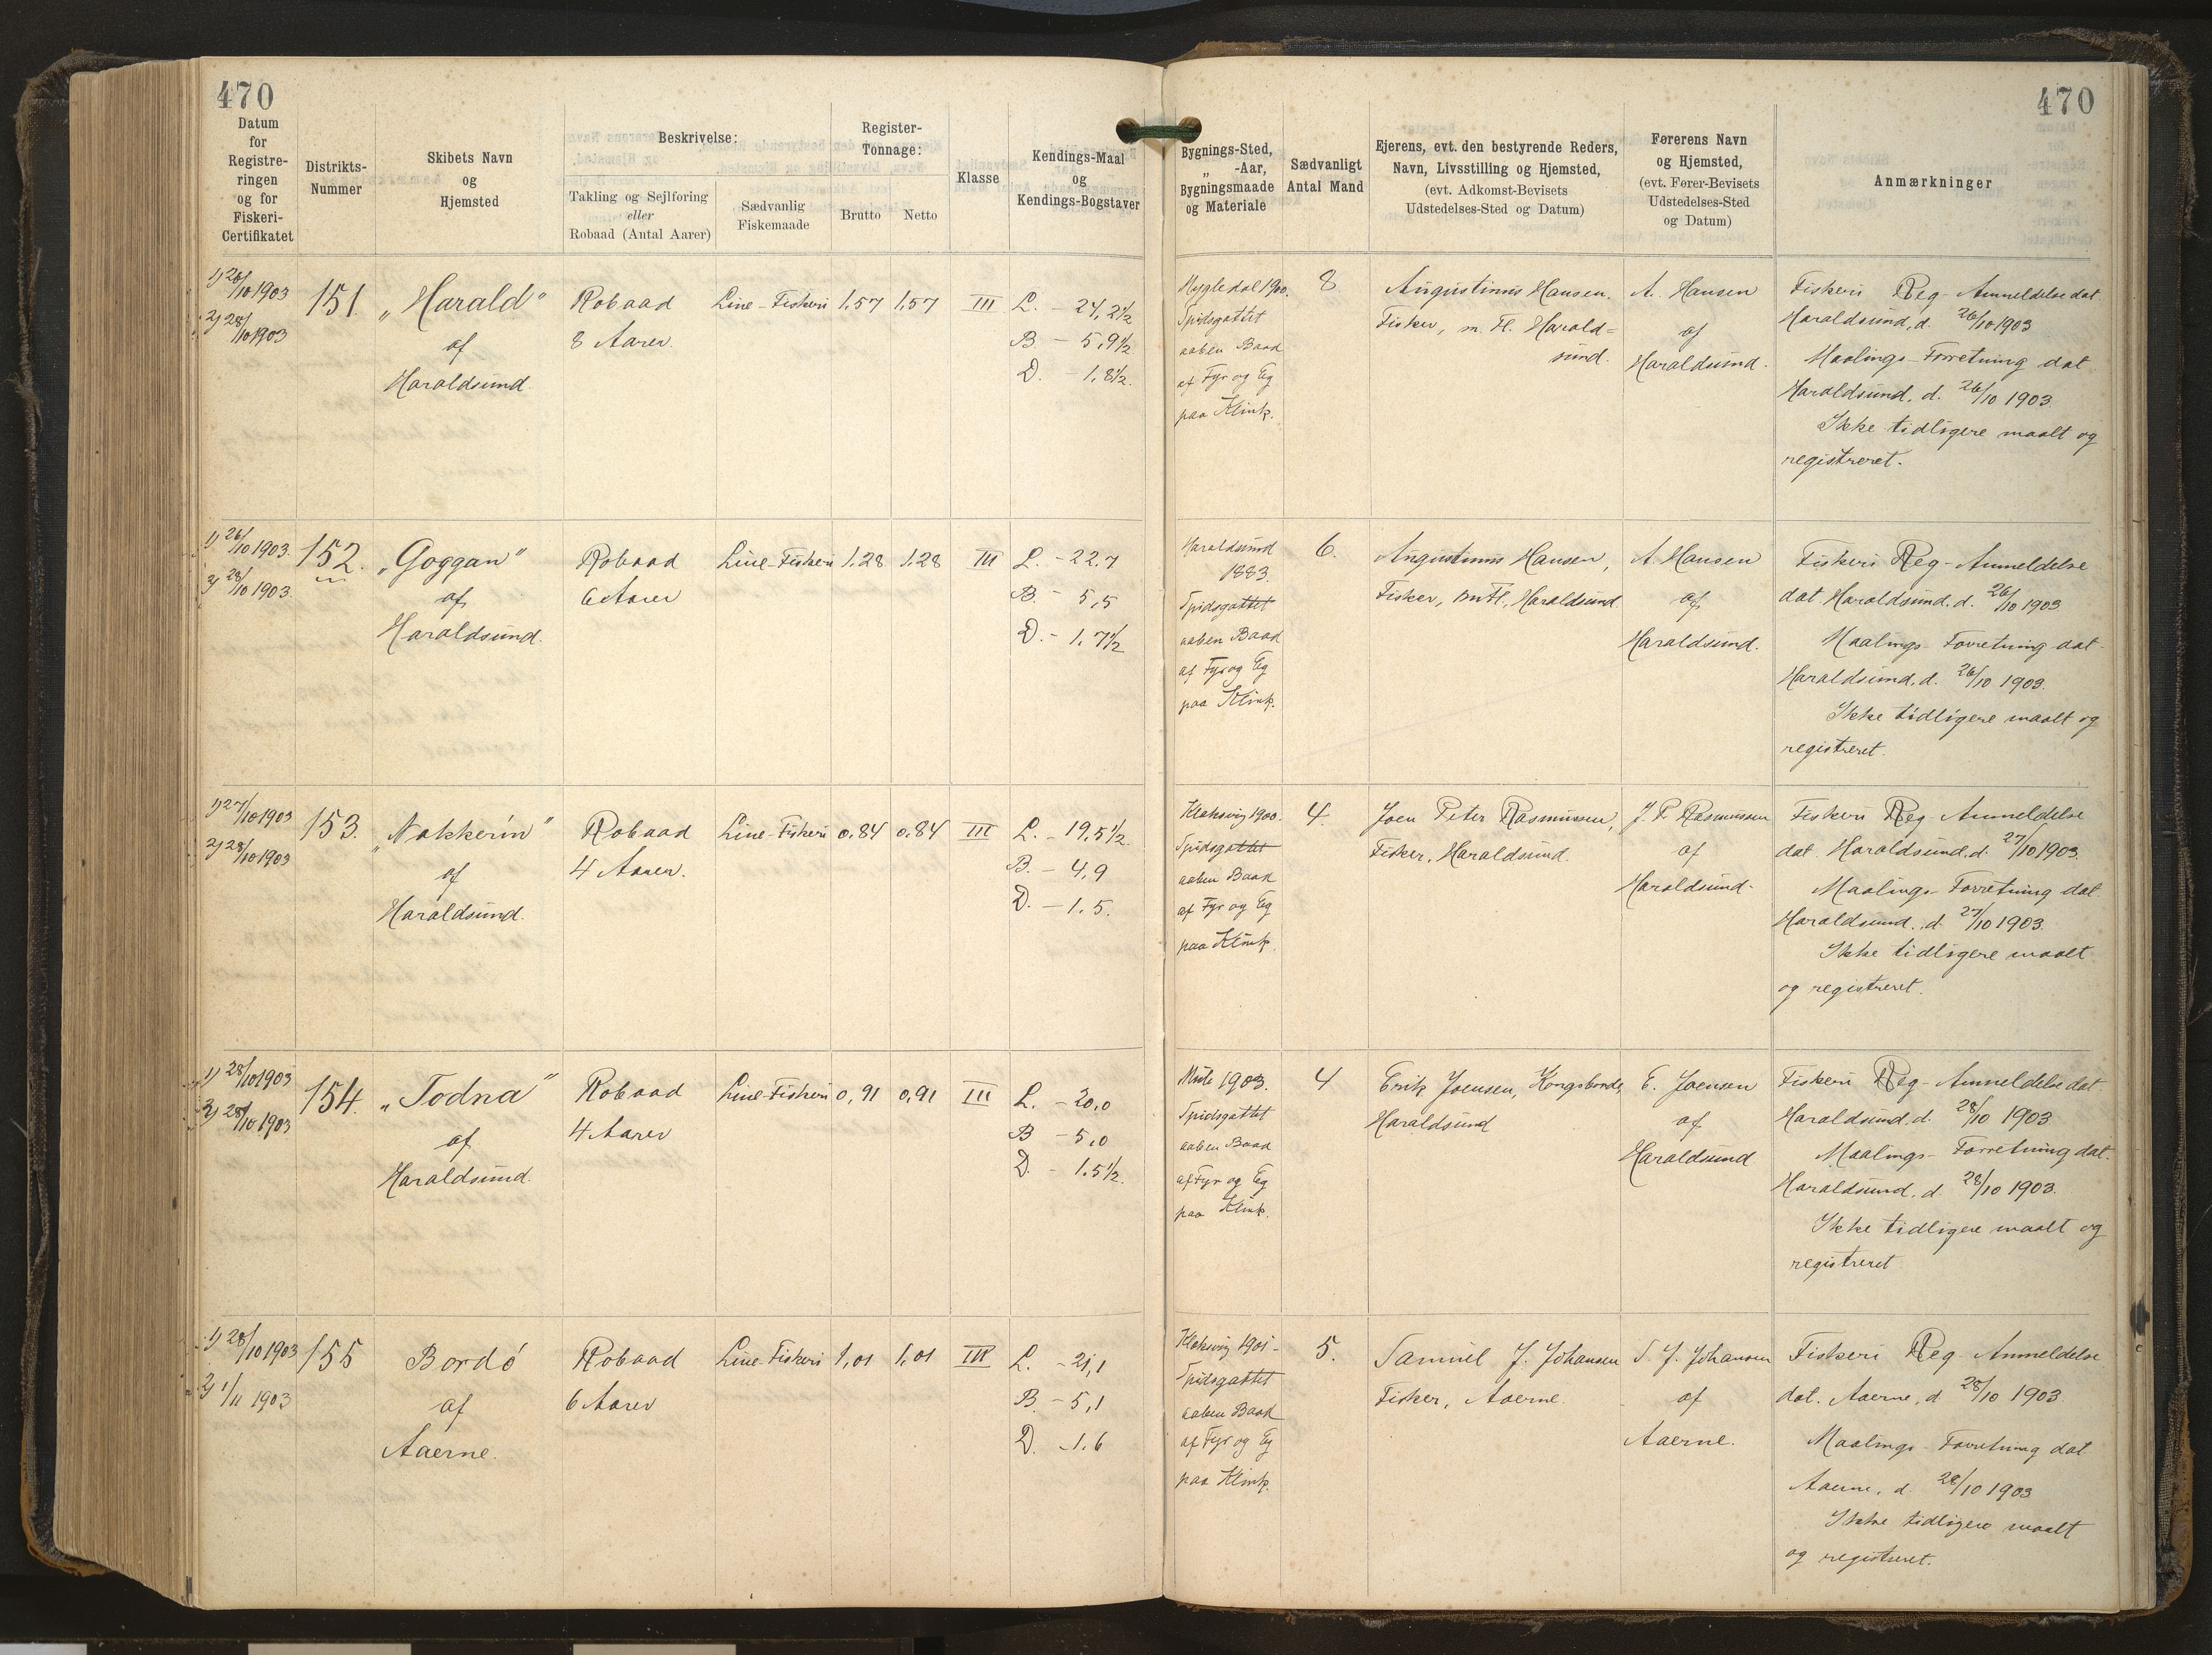 470
Datum
for
Registre-
ringen
og for
Fiskeri-
Certifikatet
Distrikts-
Nummer
Skibets Navn
og
Hjemsted
Beskrivelse:
Takling og Sejlføring
eller
Robaad (Antal Aarer)
Sædvanlig
Fiskemaade
Register-
Tonnage:
Brutto Netto
Klasse
Kendings-Maal
og
Kendings-Bogstaver
1) 26/10 1903
2) 28/10 1903
151
„Harald"
af
Haraldsund
Robaad
8 Aarer.
Line-Fiskeri
1,57 1,57
III
L. - 24,2½
B - 5,9½
D. - 1,8½.
1) 26/10 1903.
2) 28/10 1903.
152.
„Goggan"
af
Haraldsund.
Robaad
6 Aarer
Line-Fiskeri
1,28 1,28
III
L. - 22.7
B. - 5,5
D. - 1,7½
1) 27/10 1903
2) 28/10 1903
153.
„Nakkerin"
af
Haraldsund.
Robaad
4 Aarer.
Line-Fiskeri
0,84 0,84
III
L. - 19,5½.
B. - 4,9
D. - 1,5.
1) 28/10 1903
2) 28/10 1903
154.
„Todna"
af
Haraldsund.
Robaad
4 Aarer
Line-Fiskeri
0,91 0,91
III
L. - 20,0
B - 5,0
D. - 1.5½.
1) 28/10 1903
2) 1/11 1903
155
Bordó
af
Aaerne.
Robaad
6 Aarer
Line-Fiskeri
1,01 1,01
III
L. - 21,1
B. - 5,1
D. - 1.6
470
Bygnings-Sted,
„ -Aar,
Bygningsmaade
og Materiale
Sædvanligt
Antal Mand
Ejerens, evt. den bestyrende Reders,
Navn, Livsstilling og Hjemsted,
(evt. Adkomst-Bevisets
Udstedelses-Sted og Datum)
Førerens Navn
og Hjemsted,
(evt. Fører-Bevisets
Udstedelses-Sted
og Datum)
Anmærkninger
1900.
Spidsgattet
aaben Baad
af Fyr og Eg
paa Klink.
8
Augustinus Hansen.
Fisker, m. fl. Harald=
sund.
A. Hansen
af
Haraldsund.
Fiskeri Reg-Anmeldelse dat
Haraldsund, d. 26/10 1903
Maalings-Forretning dat
Haraldsund, d. 26/10 1903.
Ikke tidligere maalt og
registreret.
Haraldsund
1883.
Spidsgattet
aaben Baad
af Fyr og Eg
paa Klink.
6.
Augustinus Hansen,
Fisker, m fl., Haraldsund
A. Hansen
af
Haraldsund.
Fiskeri Reg-Anmeldelse
dat Haraldsund, d. 26/10 1903
Maalings-Forretning dat.
Haraldsund, d. 26/10 1903.
Ikke tidligere maalt og
registreret.
Klaksvig 1900.
Spidsgattet
aaben Baad
af Fyr og Eg
paa Klink.
4.
Joen Peter Rasmussen,
Fisker, Haraldsund.
J. P. Rasmussen
af
Haraldsund.
Fiskeri Reg-Anmeldelse
dat. Haraldsund, d. 27/10 1903.
Maalings-Forretning dat
Haraldsund, d. 27/10 1903.
Ikke tidligere maalt
og registreret.
1903.
Spidsgattet
aaben Baad
af Fyr og Eg
paa Klink.
4
Erik Joensen, Kongsbonde,
Haraldsund
E. Joensen
af
Haraldsund
Fiskeri Reg-Anmeldelse dat
Haraldsund, d. 28/10 1903.
Maalings-Forretning dat.
Haraldsund, d. 28/10 1903.
Ikke tidligere maalt og
registreret
Klaksvig 1901-
Spidsgattet
aaben Baad
af Fyr og Eg
paa Klink.
5.
Samuel J. Johansen
Fisker, Aaerne.
S. J. Johansen
af
Aaerne.
Fiskeri Reg-Anmeldelse
dat. Aaerne, d 28/10 1903.
Maalings-Forretning dat
Aaerne, d. 28/10 1903
Ikke tidligere maalt
og registreret.